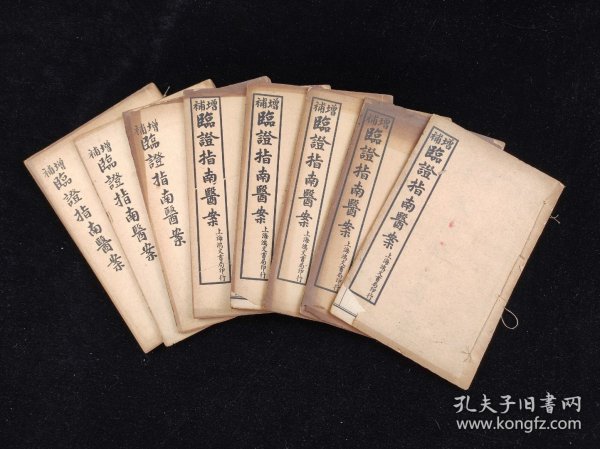 增補臨證指南醫案
增補臨證指南醫案
增補臨證指南醫案
增補臨證指南醫案
上海鴻文書局印行
增補臨證指南醫案
上海鴻文書局印行
增補臨證指南醫案
上海鴻文書局印行
增補臨證指南醫案
上海鴻文書局印行
增補臨證指南醫案
上海鴻文書局印行
孔夫子旧书网
www.kongfz.com